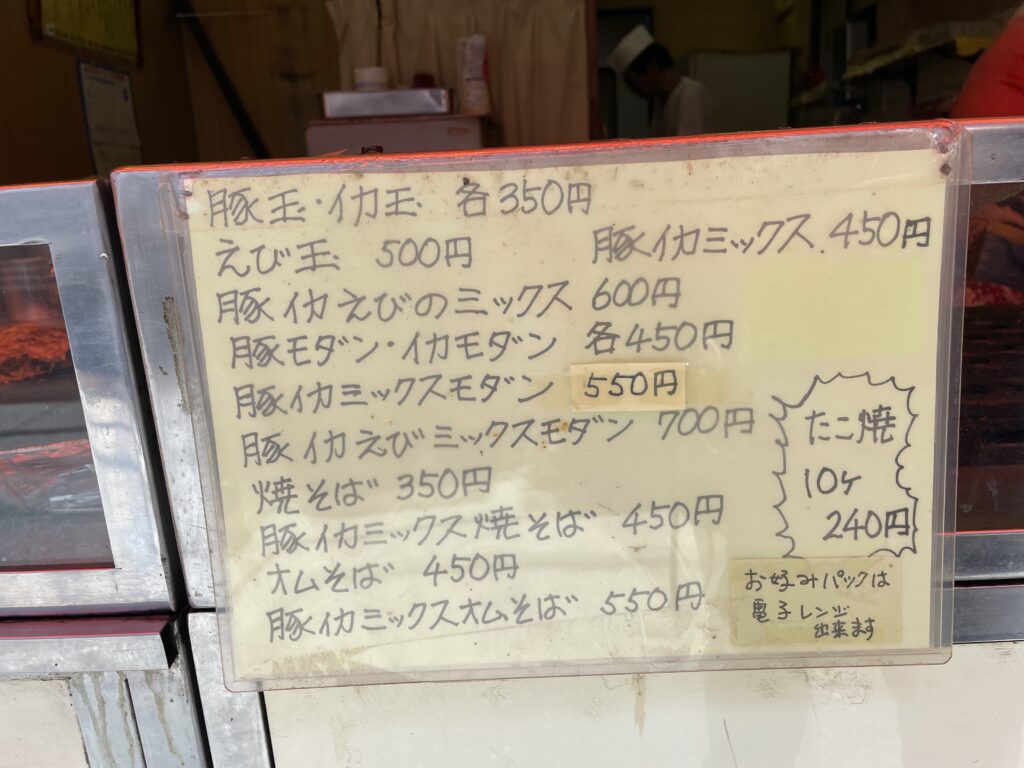 豚玉・イカ玉 各350円
えび玉 500円
豚イカミックス 450円
豚イカえびのミックス 600円
豚モダン・イカモダン 各450円
豚イカミックスモダン 550円
豚イカえびミックスモダン 700円
焼そば 350円
豚イカミックス焼そば 450円
オムそば 450円
豚イカミックスオムそば 550円
たこ焼
10ヶ
240円
お好みパックは
電子レンジ
出来ます